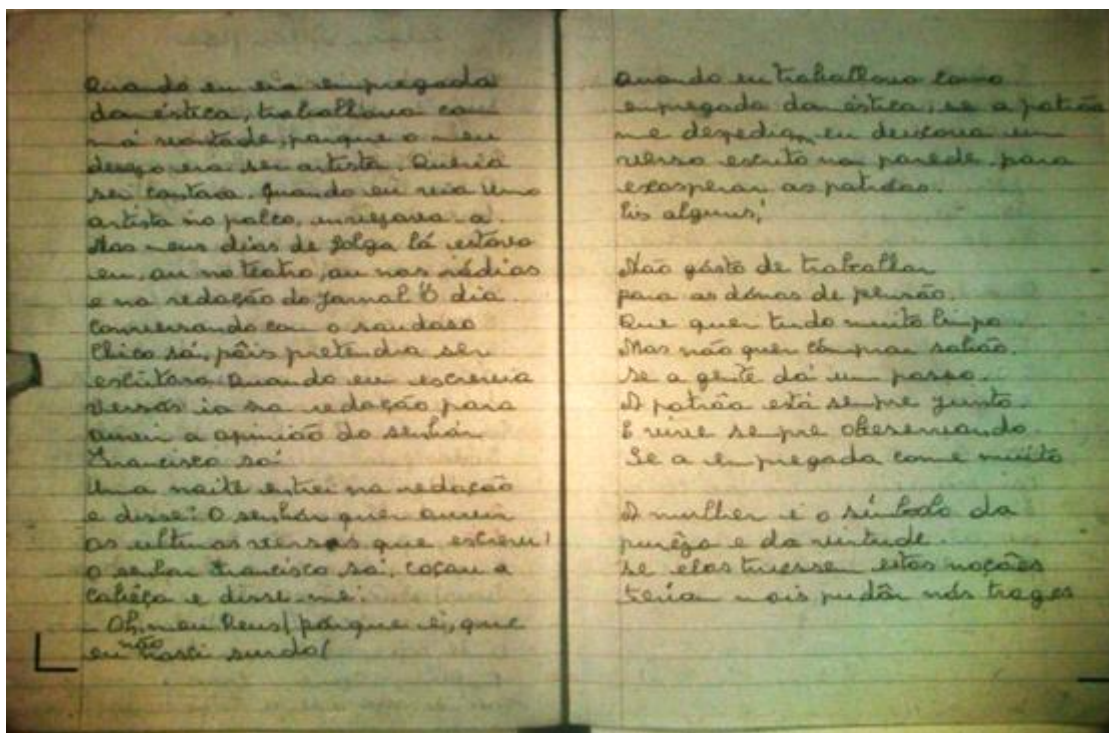 Quando eu era empregada
doméstica, trabalhava com
má vontade, porque o meu
desejo era ser artista. Queria
ser cantora. Quando eu via uma
artista no palco, invejava-a.
Nos meus dias de folga lá estava
eu, ou no teatro, ou nas rádios
e na redação do Jornal O dia
conversando com o saudoso
Chico sá, pôis pretendia ser
escritora. Quando eu escrevia
versos ia na redação para
ouvir a opinião do senhôr
Francisco sá.
Uma noite entrei na redação
e disse: O senhôr quer ouvir
os ultimos versos que escrevi!
O senhor Francisco sá, coçou a
cabêça e disse-me:
- Oh, meu Deus! porque é, que
eu não nasci surdo!
Quando eu trabalhava como
empregada doméstica, se a patrôa
me despedia, eu deixava um
verso escrito na parede para
exasperar as patrôas.
Eis alguns;
Não gósto de trabalhar
para as dônas de pensão.
Que quer tudo muito limpo
Mas não quer comprar sabão.
Se a gente dá um passo.
A patrôa está sempre junto.
E vive sempre observando
Se a empregada come muito
A mulher é o símbolo da
purêza e da virtude.
Se elas tivessem estas noções
teria mais pudôr nós trages